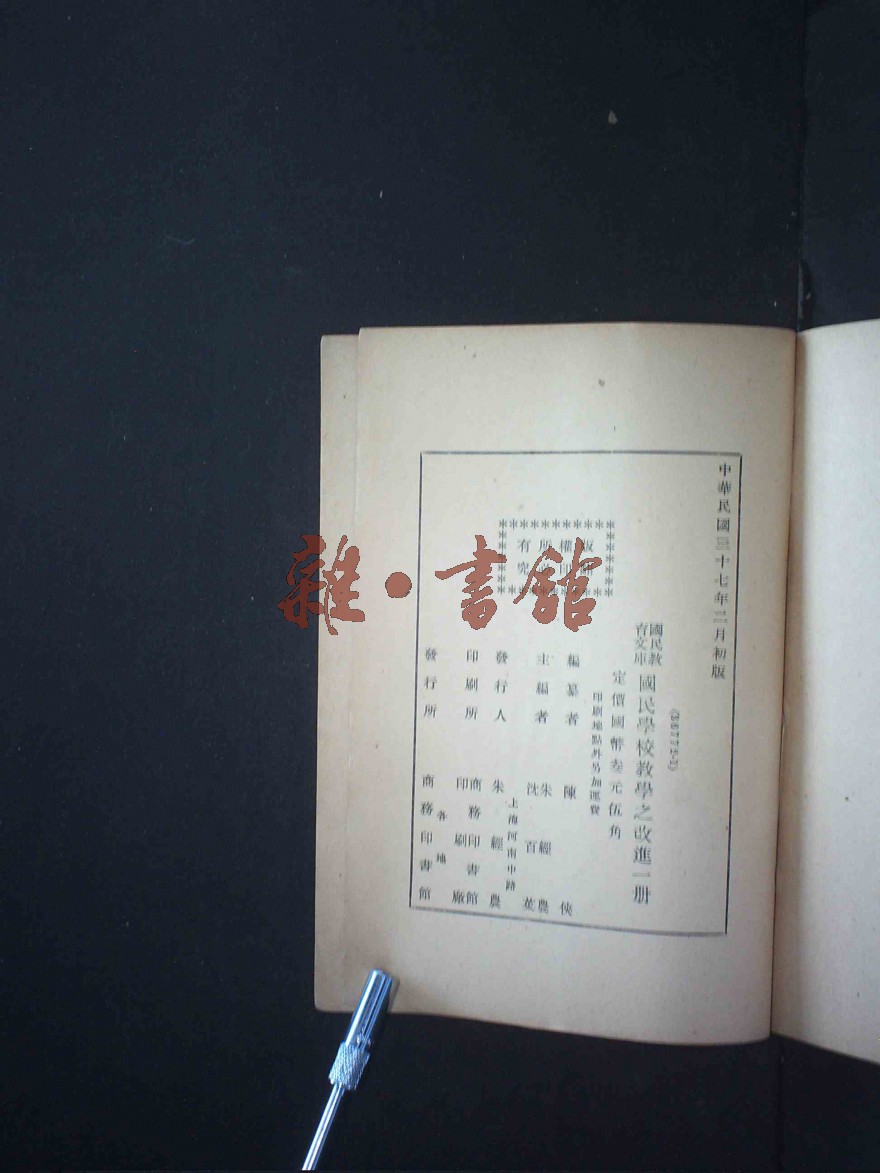 中華民國三十七年三月初版
(36771-1)
國民教育文庫 國民學校教學之改進一册
定價國幣叁元伍角
印刷地點外另加運費
版權所有
編纂者 陳俠
主編者 朱經農 沈百英
上海河南中路
發行人 朱經農
印刷所 商務印書館印刷廠
各地
發行所 商務印書館
雜·書館